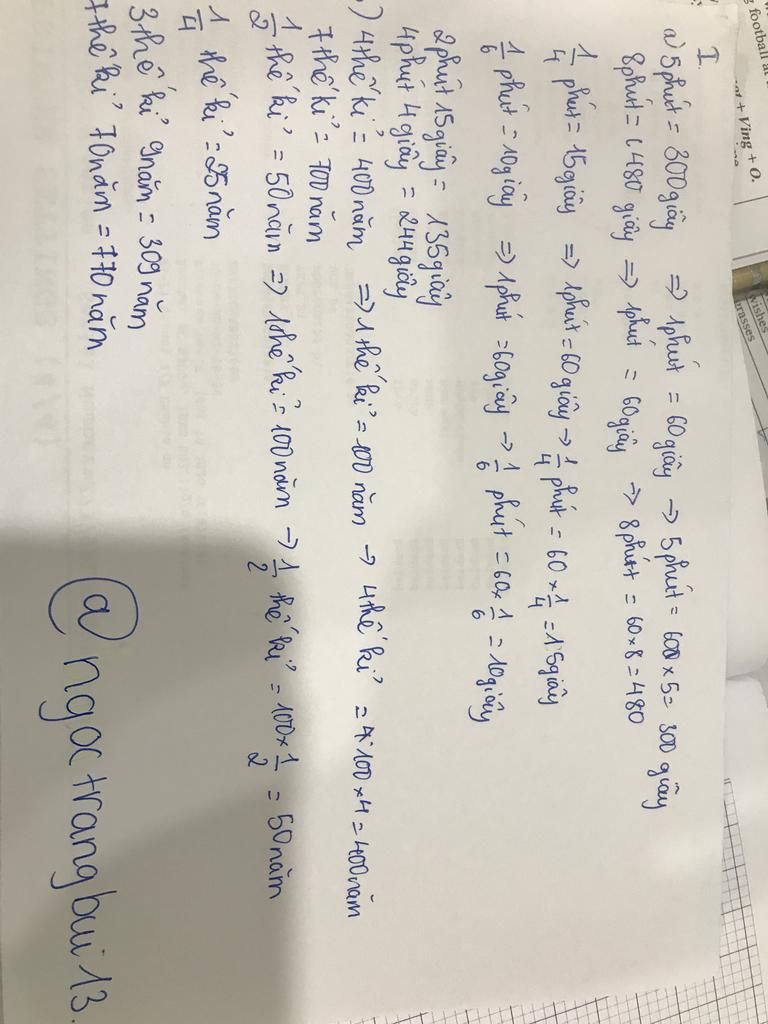 I.
a) 5 phút = 300 giây => 1 phút = 60 giây -> 5 phút = 60 x 5 = 300 giây
8 phút = 480 giây => 1 phút = 60 giây -> 8 phút = 60 x 8 = 480
1/4 phút = 15 giây => 1 phút = 60 giây -> 1/4 phút = 60 x 1/4 = 15 giây
1/6 phút = 10 giây => 1 phút = 60 giây -> 1/6 phút = 60 x 1/6 = 10 giây
2 phút 15 giây = 135 giây
4 phút 4 giây = 244 giây
) 4 thế kỉ = 400 năm => 1 thế kỉ = 100 năm -> 4 thế kỉ = 100 x 4 = 400 năm
7 thế kỉ = 700 năm
1/2 thế kỉ = 50 năm => 1 thế kỉ = 100 năm -> 1/2 thế kỉ = 100 x 1/2 = 50 năm
1/4 thế kỉ = 25 năm
3 thế kỉ 9 năm = 309 năm
7 thế kỉ 70 năm = 770 năm
@ngoctrangbui13.
football at
+ Ving + O.
wishes